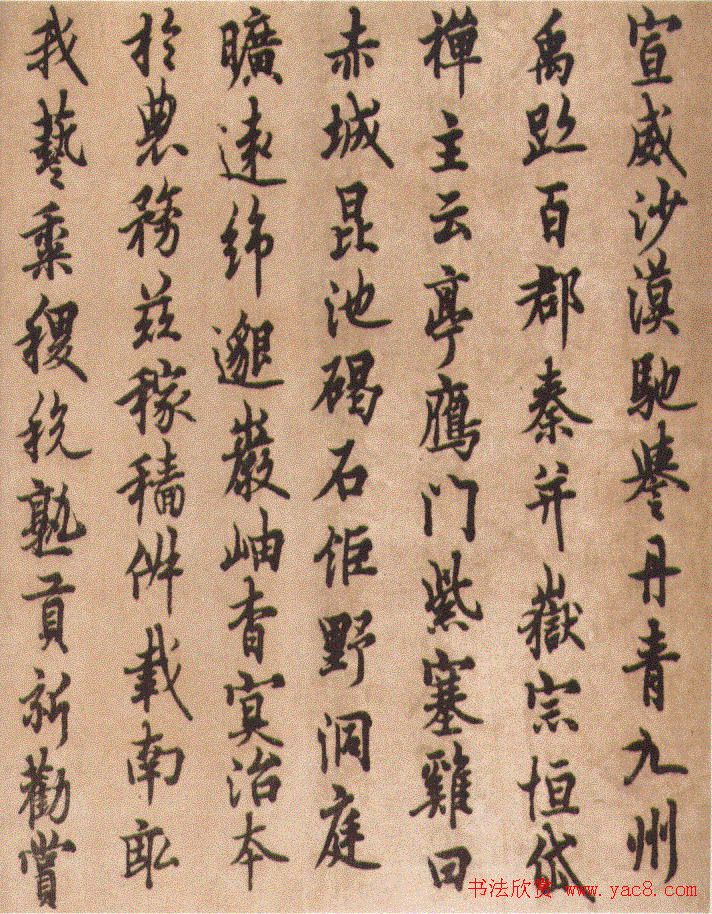 宣威沙漠馳譽丹青九州
禹跡百郡秦并嶽宗恒岱
禪主云亭鴈门紫塞雞田
赤城昆池碣石鉅野洞庭
曠遠綿邈巖岫杳冥治本
於農務兹稼穡俶載南畝
我藝黍稷稅熟貢新勸賞
书法欣赏 www.yac8.com